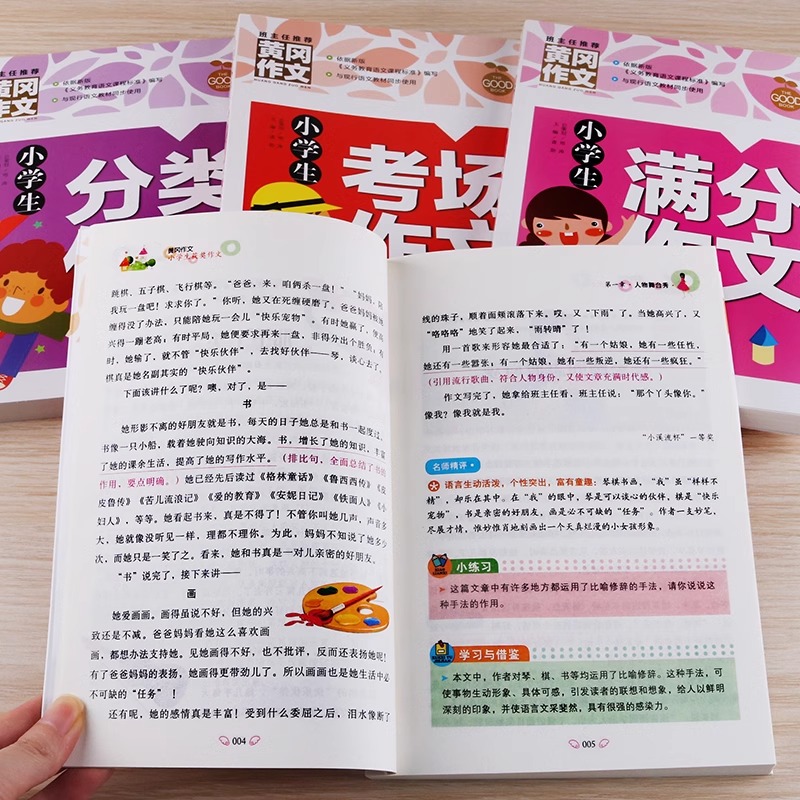 班主任推荐
黄冈作文
HUANG GANG ZUO WEN
依据新版
《义务教育语文课程标准》编写
与现行语文教材同步使用
THE GOOD BOOK
小学生
分类
班主任推荐
黄冈作文
HUANG GANG ZUO WEN
依据新版
《义务教育语文课程标准》编写
与现行语文教材同步使用
THE GOOD BOOK
小学生
考场
作文
班主任推荐
黄冈作文
HUANG GANG ZUO WEN
依据新版
《义务教育语文课程标准》编写
与现行语文教材同步使用
THE GOOD BOOK
小学生
满分
作文
黄冈作文
小学生获奖作文
跳棋、五子棋、飞行棋等。“爸爸，来，咱俩杀一盘！”“妈妈，陪
我玩一盘吧！求求你了。”你听，她又在死缠硬磨了。爸爸妈妈被她
缠得没了办法，只能陪她玩一会儿“快乐宠物”。有时她赢了，便高
兴得一蹦老高；有时平局，她便要求再来一盘，非得分出个胜负；有
时，她输了，就不管“快乐伙伴”，去找好伙伴——琴，谈心去了，
棋真是她名副其实的“快乐伙伴”。
下面该讲什么了呢？噢，对了，是——
书
她形影不离的好朋友就是书，每天的日子她总是和书一起度过。
书像一只小船，载着她驶向知识的大海。书，增长了她的知识，丰富
了她的课余生活，提高了她的写作水平。（排比句，全面总结了书的
作用，要点明确。）她已经先后读过《格林童话》《鲁西西传》《皮
皮鲁传》《苦儿流浪记》《爱的教育》《安妮日记》《铁面人》《小
妇人》，等等。她看起书来，真是不得了！不管你叫她几声，声音多
大，她就像没听见一样，理都不理你。为此，妈妈不知说了她多少
次，而她只是一笑了之。看来，她和书真是一对儿亲密的好朋友。
“书”说完了，接下来讲——
画
她爱画画。画得虽说不好，但她的兴
致还是不减。爸爸妈妈看她这么喜欢画
画，都想办法支持她。见她画得不好，也不批评，反而还表扬她呢！
有了爸爸妈妈的表扬，她画得更带劲儿了。所以画画也是她生活中必
不可缺的“任务”！
还有呢，她的感情真是丰富！受到什么委屈之后，泪水像断了
004
第一章·人物舞台秀
线的珠子，顺着面颊滚落下来。哎，又“下雨”了。当她高兴了，又
“咯咯咯”地笑了起来，“雨转晴”了！
用一首歌来形容她最合适了：“有一个姑娘，她有一些任性，
她还有一些嚣张；有一个姑娘，她有一些叛逆，她还有一些疯狂。”
（引用流行歌曲，符合人物身份，又使文章充满时代感。）
作文写完了，她拿给班主任看，班主任说：“那个丫头像你。”
像我？像我就是我。
“小溪流杯”一等奖
名师精评
语言生动活泼，个性突出，富有童趣：琴棋书画，“我”虽“样样不
精”，却乐在其中。在“我”的眼中，琴是可以谈心的伙伴，棋是“快乐
宠物”，书是亲密的好朋友，画是必不可缺的“任务”。作者一支妙笔，
尽展才情，惟妙惟肖地刻画出一个天真烂漫的小女孩形象。
小练习
这篇文章中有许多地方都运用了比喻修辞的手法，请你说说这
种手法的作用。
学习与借鉴
本文中，作者对琴、棋、书等均运用了比喻修辞。这种手法，可
使事物生动形象、具体可感，引发读者的联想和想象，给人以鲜明
深刻的印象，并使语言文采斐然，具有很强的感染力。
005